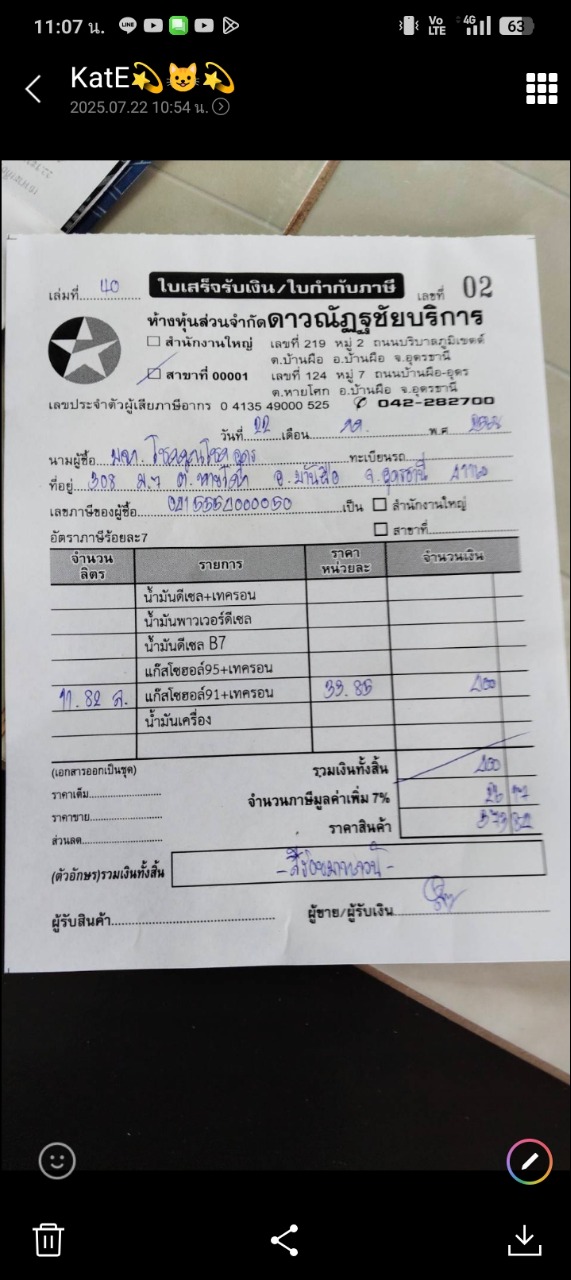 11:07 น.
Vo LTE 4G 63
KatE💫😺💫
2025.07.22 10:54 น.
เล่มที่ 40 ใบเสร็จรับเงิน/ใบกำกับภาษี เลขที่ 02
ห้างหุ้นส่วนจำกัดดาวณัฏฐชัยบริการ
สำนักงานใหญ่ เลขที่ 219 หมู่ 2 ถนนบริบาลภูมิเขตต์
ต.บ้านผือ อ.บ้านผือ จ.อุดรธานี
สาขาที่ 00001 เลขที่ 124 หมู่ 7 ถนนบ้านผือ-อุดร
ต.หายโศก อ.บ้านผือ จ.อุดรธานี
เลขประจำตัวผู้เสียภาษีอากร 0 4135 49000 525 ✆ 042-282700
วันที่ 22 เดือน พ.ศ.
นามผู้ซื้อ ทะเบียนรถ
ที่อยู่ 308 ม.7 อ.บ้านผือ จ.อุดรธานี
เลขภาษีของผู้ซื้อ เป็น สำนักงานใหญ่
อัตราภาษีร้อยละ7 สาขาที่
จำนวนลิตร รายการ ราคาหน่วยละ จำนวนเงิน
น้ำมันดีเซล+เทครอน
น้ำมันพาวเวอร์ดีเซล
น้ำมันดีเซล B7
แก๊สโซฮอล์95+เทครอน
11.82 ล. แก๊สโซฮอล์91+เทครอน 33.85 400
น้ำมันเครื่อง
(เอกสารออกเป็นชุด) รวมเงินทั้งสิ้น 400
ราคาเต็ม จำนวนภาษีมูลค่าเพิ่ม 7% 26 17
ราคาขาย ราคาสินค้า 373 82
ส่วนลด
(ตัวอักษร)รวมเงินทั้งสิ้น -สี่ร้อยบาทถ้วน-
ผู้รับสินค้า ผู้ขาย/ผู้รับเงิน